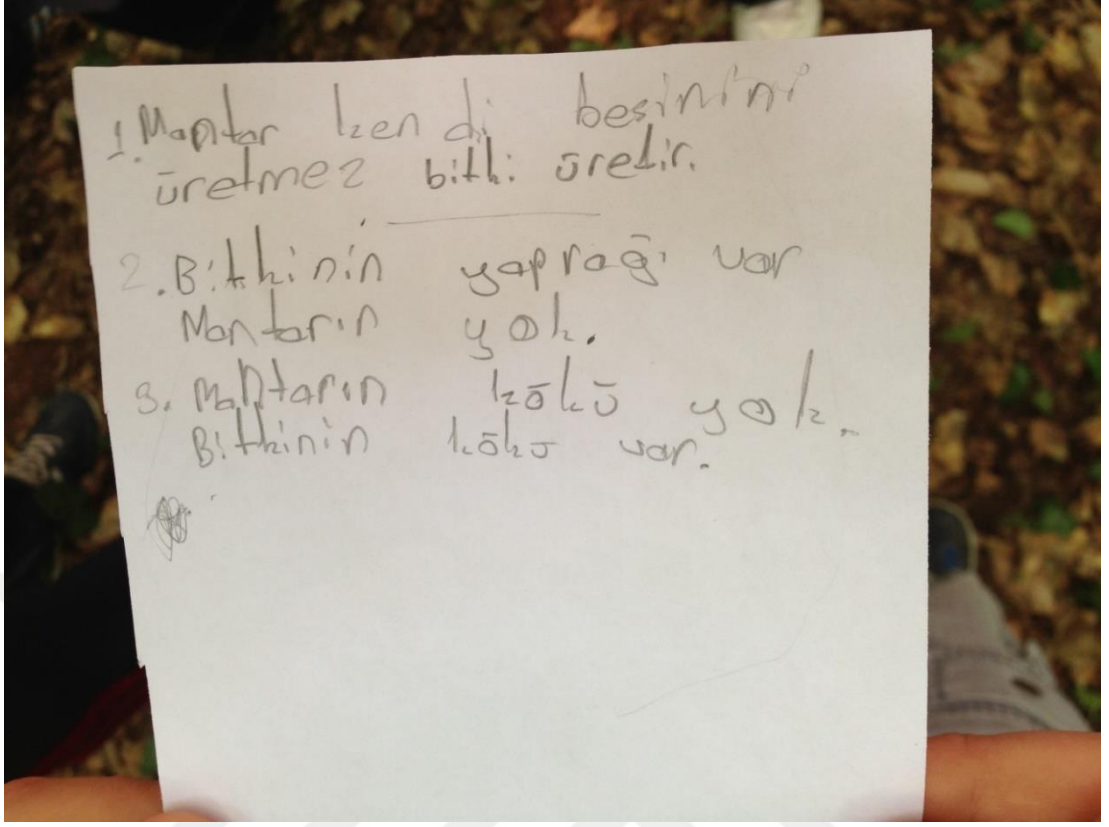 1. Mantar kendi besinini
üretmez bitki üretir.
2. Bitkinin yaprağı var
Mantarın yok.
3. Mantarın kökü yok.
Bitkinin kökü var.